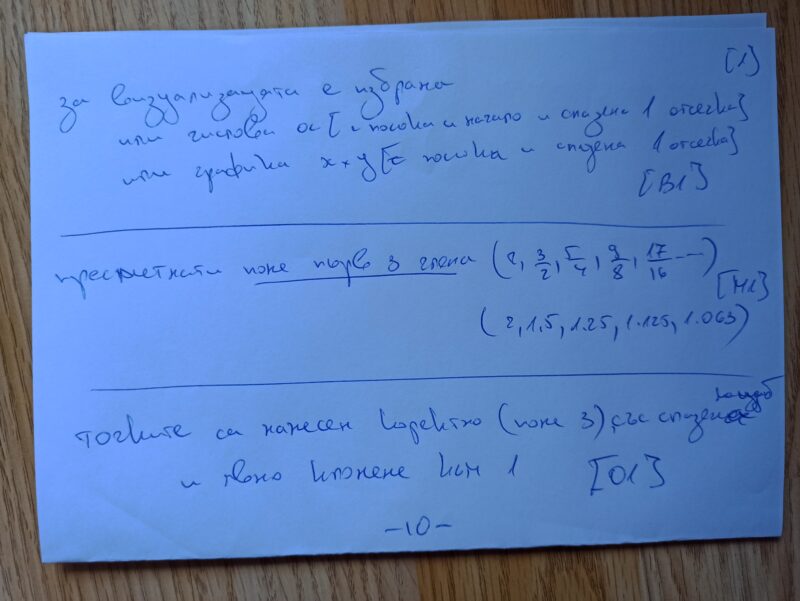 [1]
за визуализацията е избрана
или числова ос [с посока и начало и спазена 1 отсечка]
или графика x x y [с посока и спазена 1 отсечка]
[B1]
пресметнати поне първо 3 члена (2, 3/2, 5/4, 9/8, 17/16 ...)
[M1]
(2, 1.5, 1.25, 1.125, 1.063)
точките са нанесен коректно (поне 3) със спазен мащаб
и явно клонене към 1 [O1]
-10-